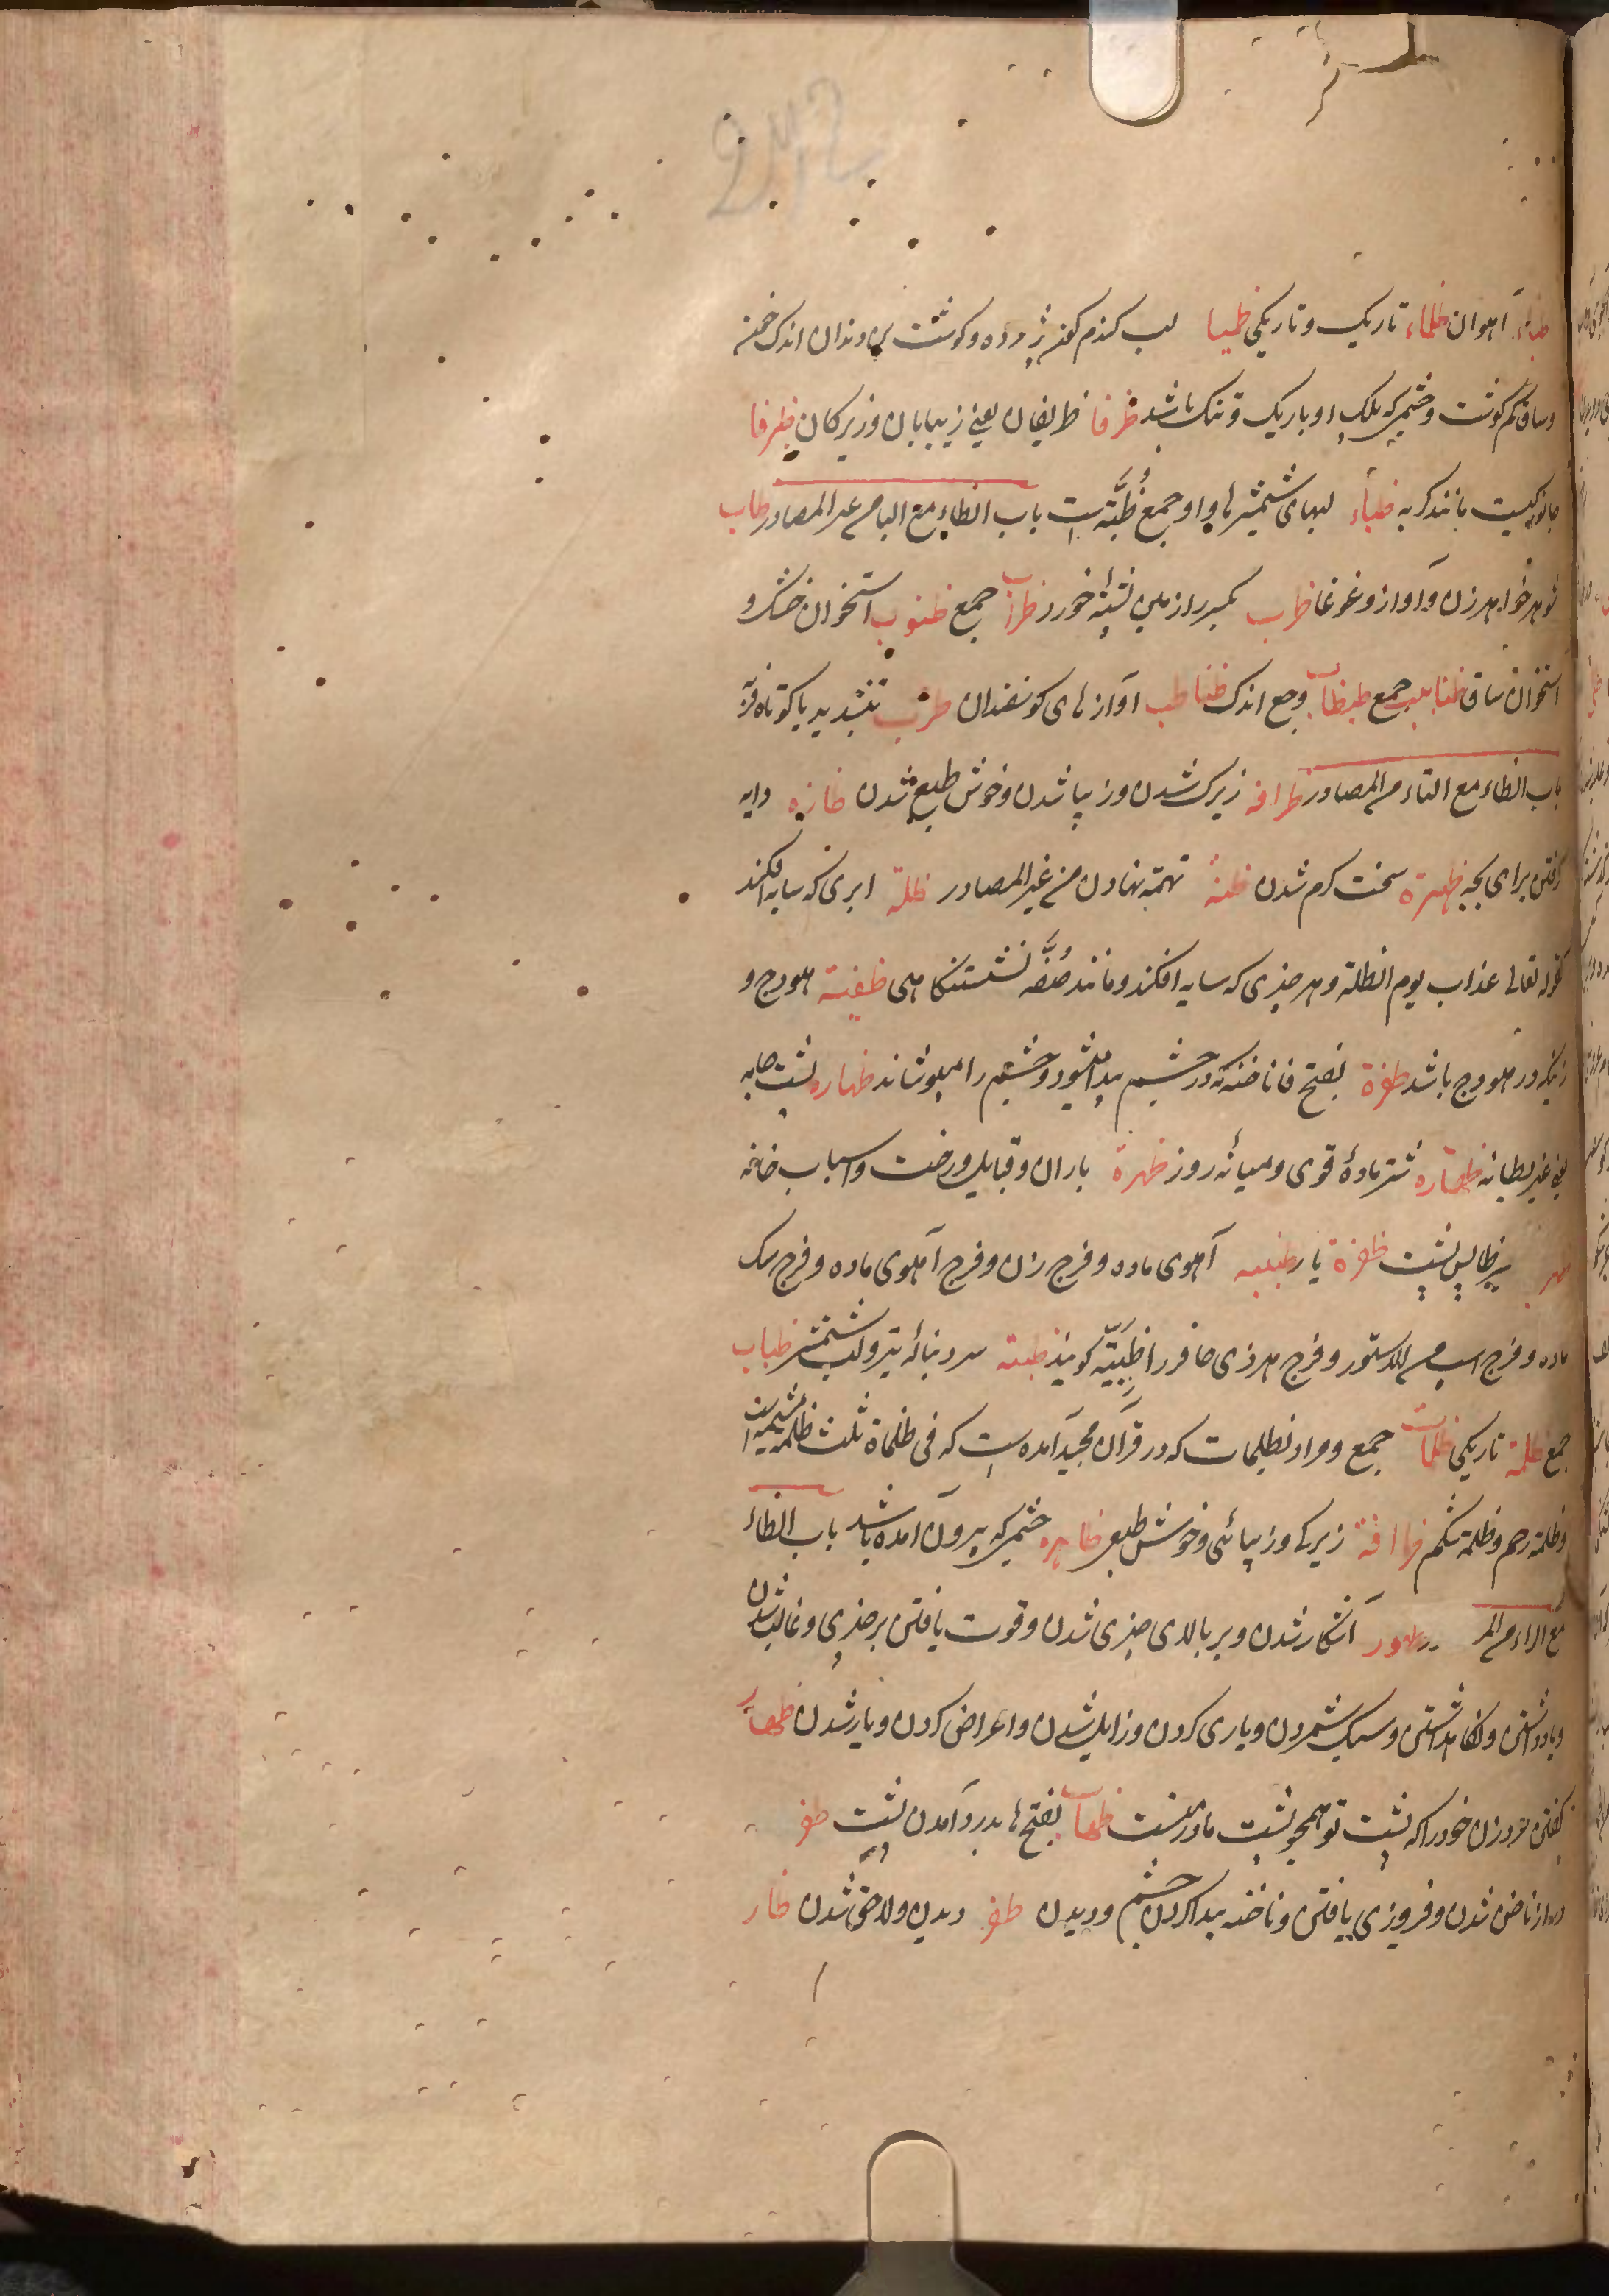 ظباء آهوان ظلماء تاریک و تاریکی ظمیا لب کندم کون و کوشت بن دندان اندک خون
و ساق کم کوشت و چشمی که پلک او باریک و تنک باشد ظرفا ظریفان یعنی زیبایان و زیرکان ظرفا
جانوریست مانند کربه ظباء لبهای شمشیرها و او جمع ظُبَّة است باب الظاء مع البا من غیر المصادر ظاب
شوهر خواهر زن و آواز و غوغا ظراب جمع ظنوب استخوان خشک و
استخوان ساق ظنابیب جمع ظبظاب وجع اندک ظباظب آوازهای کوسفندان ظرب بتشدید با کوتاه فربه
باب الظاء مع التاء من المصادر ظرافه زیرک شدن و زیبا شدن و خوش طبع شدن دایه
کرفتن برای بچه ظهیرة سخت کرم شدن ظنة تهمة نهادن من غیر المصادر ظلة ابری که سایه افکند
کقوله تعالی عذاب یوم الظلة و هر چیزی که سایه افکند و مانند صُفَّه نشستنکاهی ظعینة هودج و
زنیکه در هودج باشد ظفرة بفتح فا ناخنه که در چشم پیدا شود و چشم را بپوشاند ظهاره پشت جامه
یعنی غیر بطانه ظهیره شتر مادهٔ قوی و میانهٔ روز ظهرة یاران و قبایل و رخت و اسباب خانه
پس پشت ظهرة یار ظبیه آهوی ماده و فرج زن و فرج آهوی ماده و فرج سک
ماده و فرج اسپ و فرج هر ذی حافر را ظَبِیَّه کویند ظبة سر و دنبالهٔ تیر و لب شمشیر ظبات
جمع ظلمة تاریکی ظلمات جمع و مراد بظلمات که در قرآن مجید آمده است که فی ظلماة ثلث ظلمة مشیمه است
و ظلمة رحم و ظلمة شکم ظرافة زیرکی و زیبائی و خوش طبعی ظاهره چشمی که بیرون آمده باشد باب الظاء
مع الراء من المصادر ظهور آشکار شدن و بر بالای چیزی شدن و قوت یافتن بر چیزی و غالب شدن
و یاد داشتن و نکاهداشتن و سبک شمردن و یاری کردن و زایل شدن و اعراض کردن و یار شدن ظهار
کفتن مرد زن خود را که پشت تو همچو پشت مادر منست بفتح ها بدرد آمدن پشت ظفر
دراز ناخن شدن و فیروزی یافتن و ناخنه پیدا کردن چشم و دیدن ظفر دیدن و لاحق شدن ظار